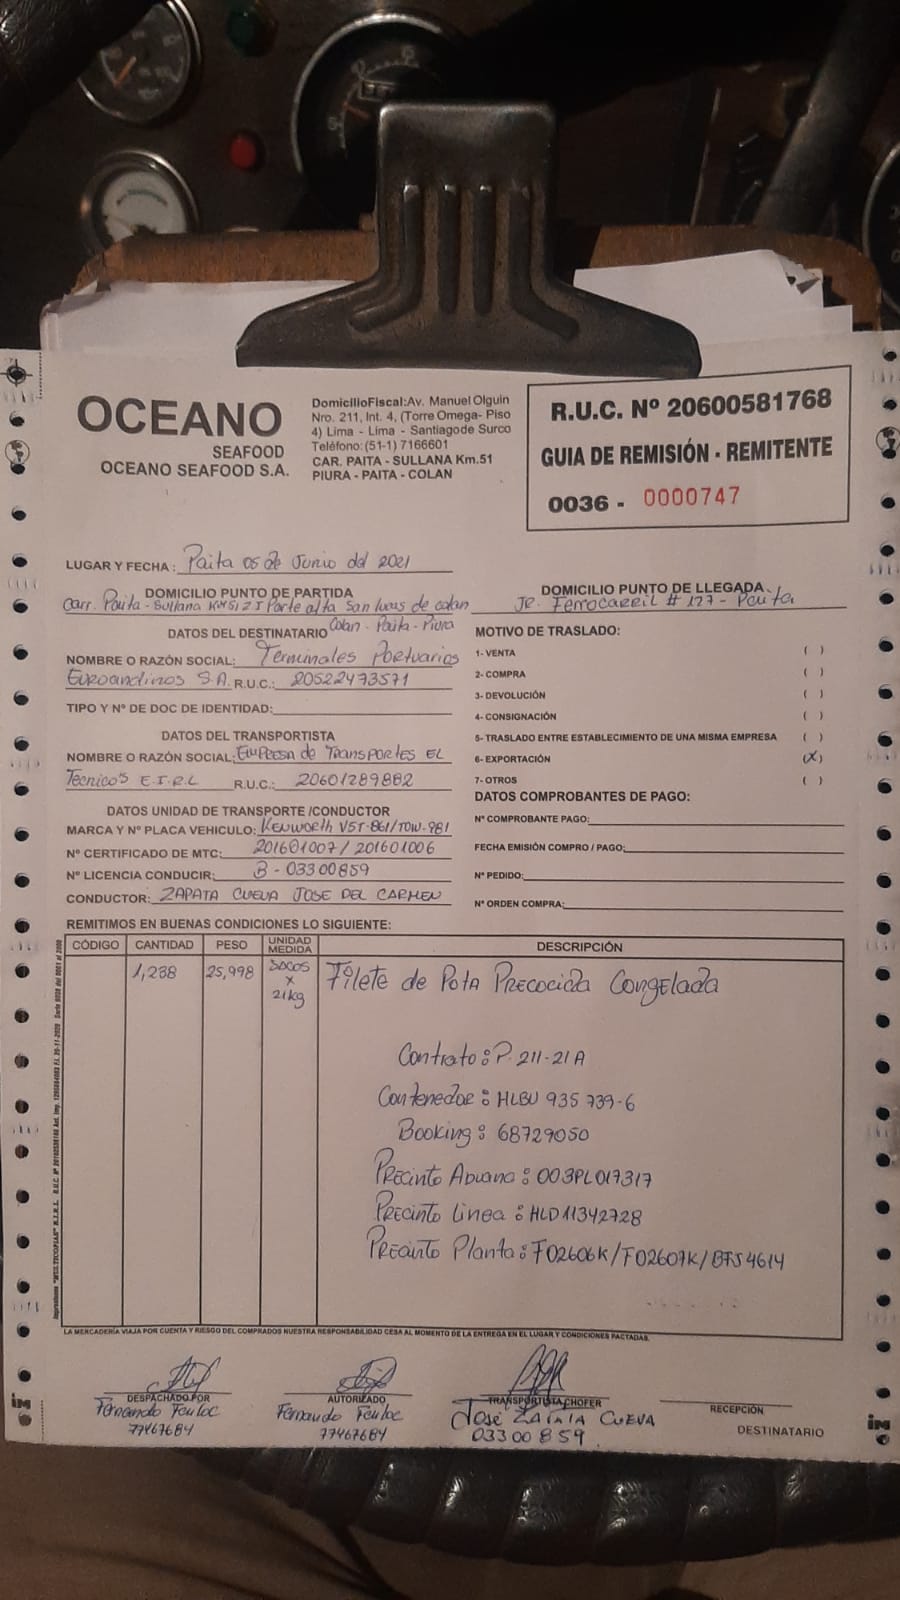 OCEANO
SEAFOOD
OCEANO SEAFOOD S.A.
DomicilioFiscal:Av. Manuel Olguin
Nro. 211, Int. 4, (Torre Omega- Piso
4) Lima - Lima - Santiagode Surco
Teléfono:(51-1) 7166601
CAR. PAITA - SULLANA Km.51
PIURA - PAITA - COLAN
R.U.C. Nº 20600581768
GUIA DE REMISIÓN - REMITENTE
0036 - 0000747
LUGAR Y FECHA : Paita 05 de Junio del 2021
DOMICILIO PUNTO DE PARTIDA
Carr. Paita - Sullana KM 51 Z I Parte alta San lucas de colan
Colan - Paita - Piura
DOMICILIO PUNTO DE LLEGADA
JR. Ferrocarril # 127 - Paita
DATOS DEL DESTINATARIO
NOMBRE O RAZÓN SOCIAL: Terminales Portuarios
Euroandinos S.A. R.U.C.: 20522473571
TIPO Y Nº DE DOC DE IDENTIDAD:
DATOS DEL TRANSPORTISTA
NOMBRE O RAZÓN SOCIAL: Empresa de Transportes EL
Tecnico's E.I.R.L R.U.C.: 20601289882
DATOS UNIDAD DE TRANSPORTE /CONDUCTOR
MARCA Y Nº PLACA VEHICULO: Kenworth V5T-861/TOW-981
Nº CERTIFICADO DE MTC: 201601007 / 201601006
Nº LICENCIA CONDUCIR: B - 03300859
CONDUCTOR: ZAPATA CUEVA JOSE DEL CARMEN
MOTIVO DE TRASLADO:
1- VENTA ( )
2- COMPRA ( )
3- DEVOLUCIÓN ( )
4- CONSIGNACIÓN ( )
5- TRASLADO ENTRE ESTABLECIMIENTO DE UNA MISMA EMPRESA ( )
6- EXPORTACIÓN (X)
7- OTROS ( )
DATOS COMPROBANTES DE PAGO:
Nº COMPROBANTE PAGO:
FECHA EMISIÓN COMPRO / PAGO:
Nº PEDIDO:
Nº ORDEN COMPRA:
REMITIMOS EN BUENAS CONDICIONES LO SIGUIENTE:
CÓDIGO CANTIDAD PESO UNIDAD MEDIDA DESCRIPCIÓN
1,238 25,998 Sacos x 21kg Filete de Pota Precocida Congelada
Contrato: P. 211-21A
Contenedor: HLBU 935 739-6
Booking: 68729050
Precinto Aduana: 003PL017317
Precinto Linea: HLD11342728
Precinto Planta: F02606K/F02607K/BFS4614
LA MERCADERÍA VIAJA POR CUENTA Y RIESGO DEL COMPRADOS NUESTRA RESPONSABILIDAD CESA AL MOMENTO DE LA ENTREGA EN EL LUGAR Y CONDICIONES PACTADAS.
DESPACHADO POR
Fernando
77467684
AUTORIZADO
Fernando
77467684
TRANSPORTISTA CHOFER
José ZAPATA CUEVA
03300859
RECEPCIÓN
DESTINATARIO